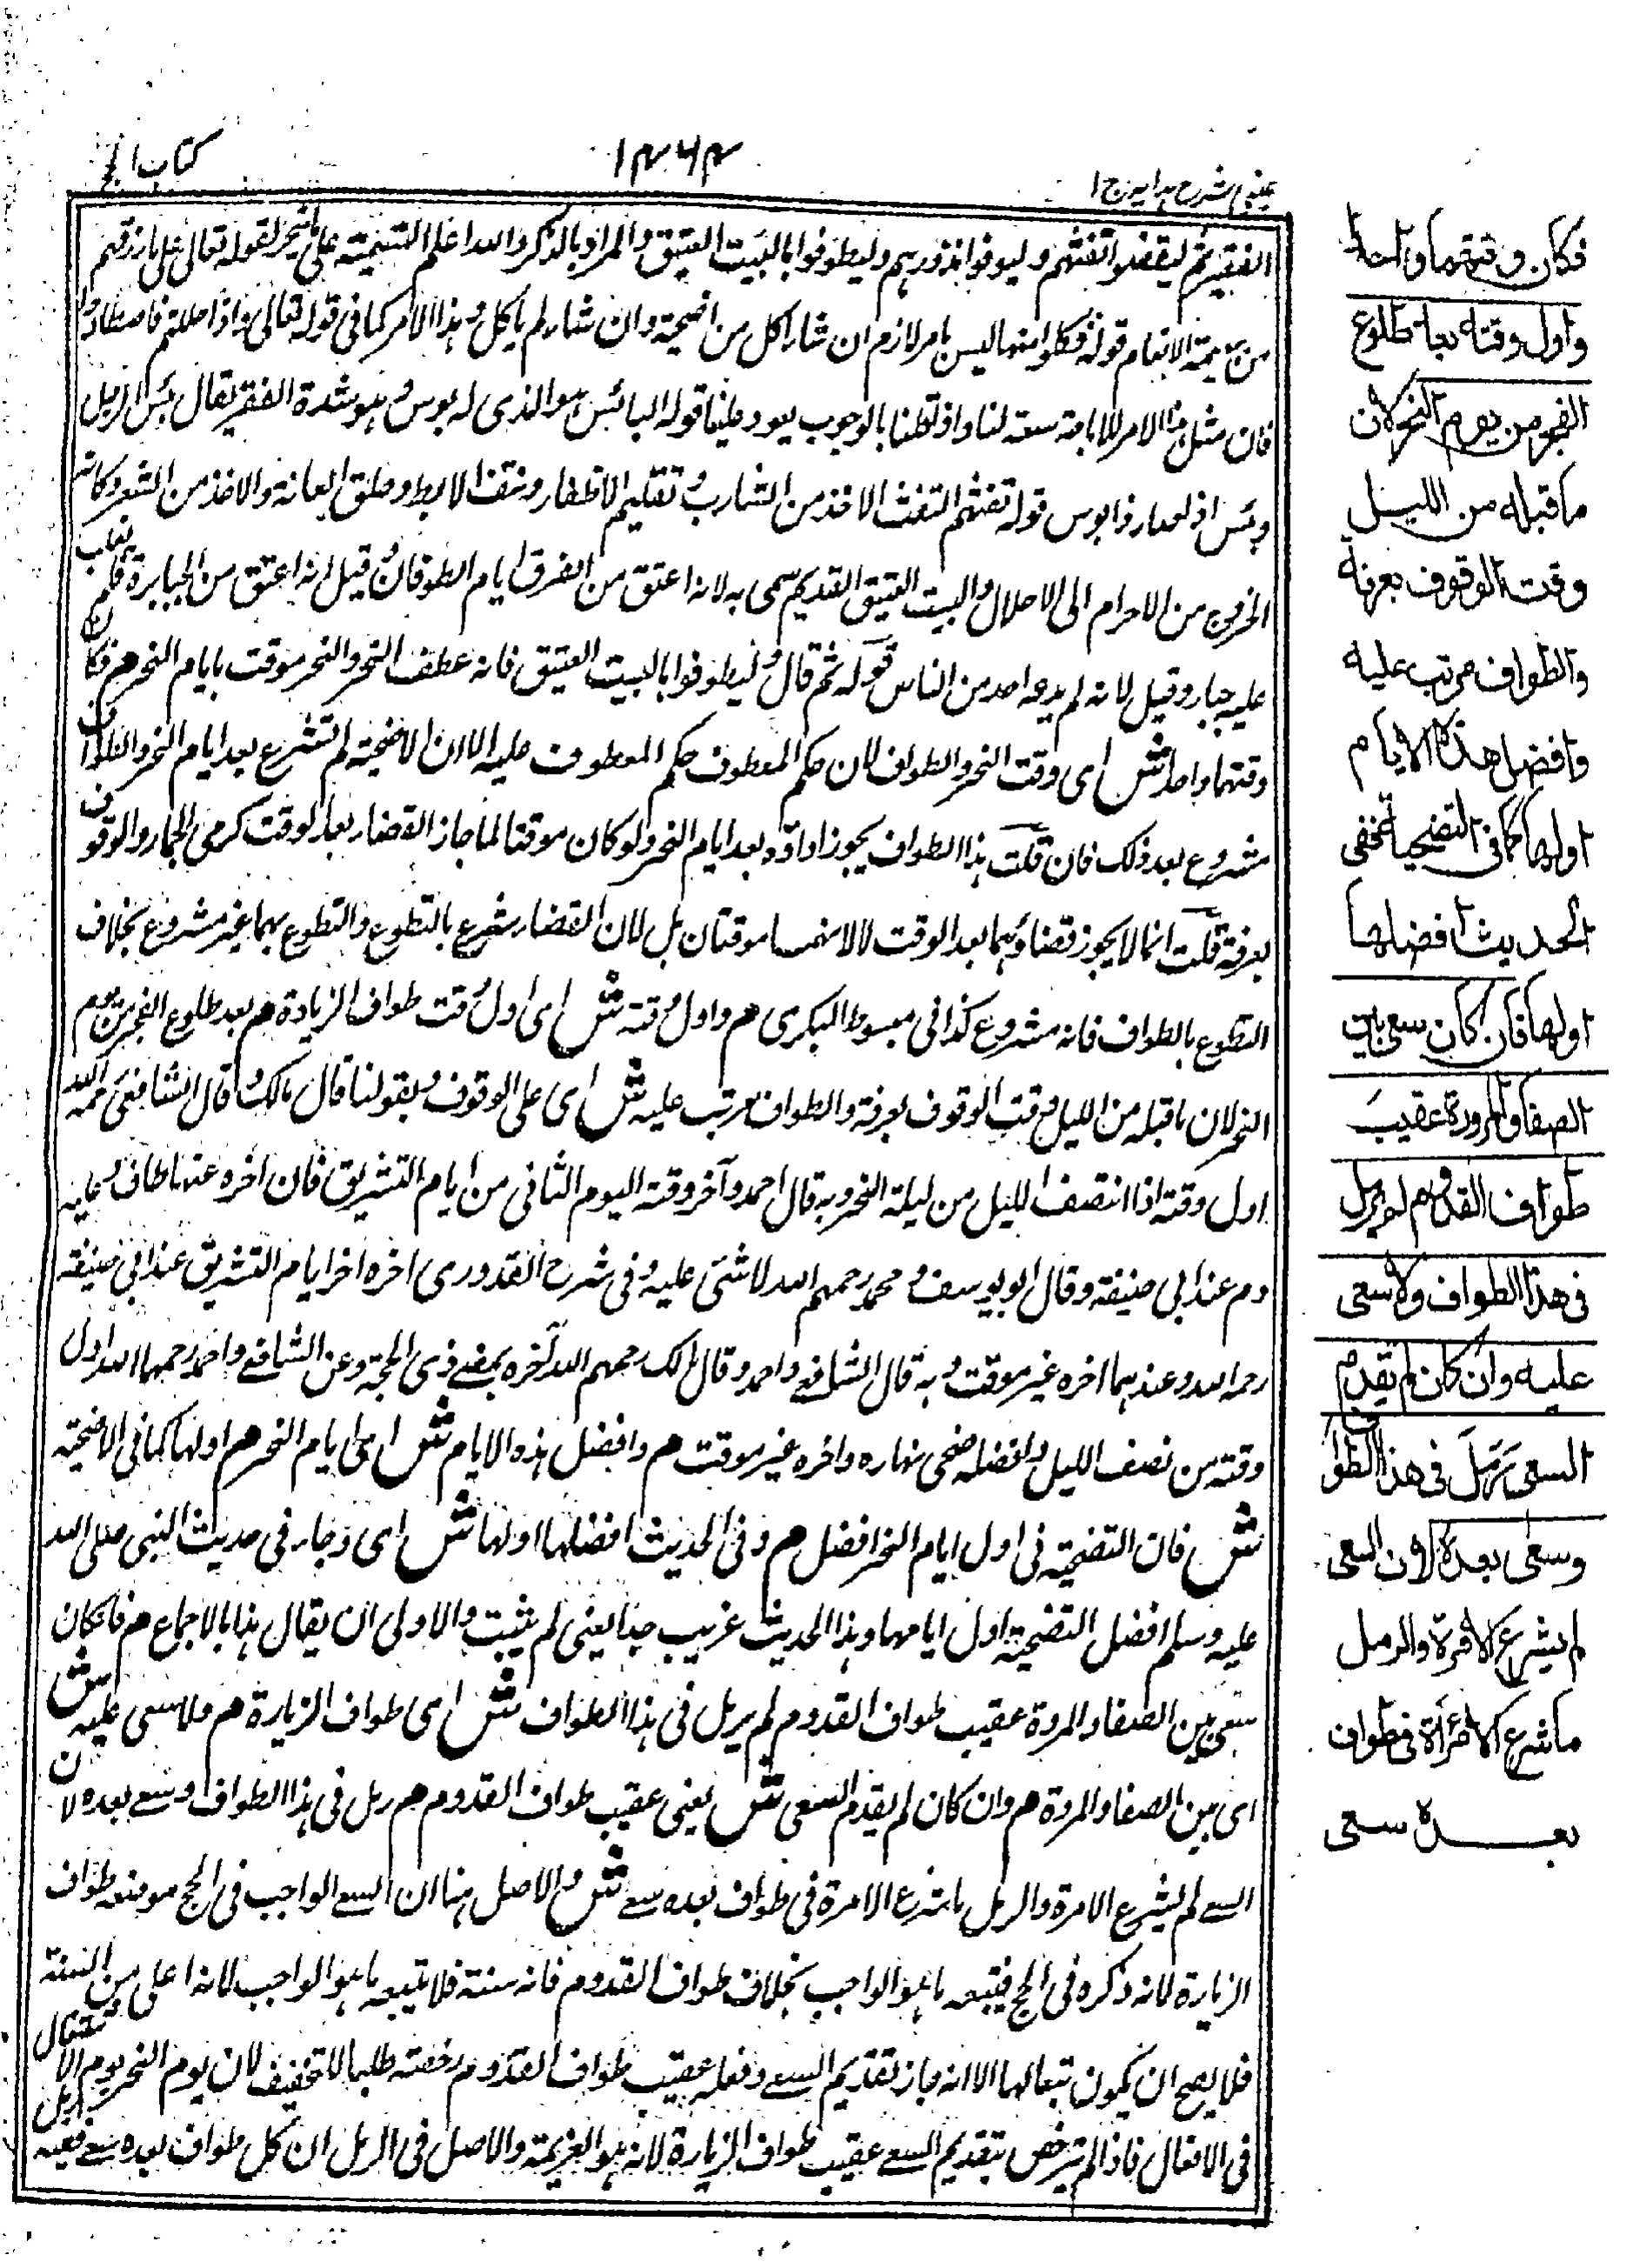 عینی شرح ہدایہ ج ۱
۱۴۶۴
کتاب الحج
الفقیر ثم لیقضوا تفثہم ولیوفوا نذورہم ولیطوفوا بالبیت العتیق والمراد بالذکر واللہ اعلم التسمیۃ علی النحر لقولہ تعالی علی ما رزقہم
من بہیمۃ الانعام قولہ فکلوا منہا لیس بامر لازم ان شاء اکل من اضحیۃ وان شاء لم یاکل وہذا الامر کما فی قولہ تعالی واذا حللتم فاصطادوا
فان مثل ہذا الامر للاباحۃ سعۃ لنا واذ قلنا بالوجوب یعود علینا قولہ البائس ہو الذی لہ بوس وہو شدۃ الفقر یقال بئس الرجل
وبئس اذا صار ذا بوس قولہ تفثہم التفث الاخذ من الشارب وتقلیم الاظفار ونتف الابط وحلق العانۃ والاخذ من الشعر وکانہ
الخروج من الاحرام الی الاحلال والبیت العتیق القدیم سمی بہ لانہ اعتق من الغرق ایام الطوفان وقیل لانہ اعتق من الجبابرۃ فلم یغلب
علیہ جبار وقیل لانہ لم یدعہ احد من الناس قولہ ثم قال ولیطوفوا بالبیت العتیق فانہ عطف النحر والنحر موقت بایام النحر ھم فکان
وقتہما واحدا ش ای وقت النحر والطواف لان حکم المعطوف حکم المعطوف علیہ الا ان الاضحیۃ لم تشرع بعد ایام النحر والطواف
مشروع بعد ذلک فان قلت ہذا الطواف یجوز اداؤہ بعد ایام النحر ولو کان موقتا لما جاز القضاء بعد الوقت کرمی الجمار والوقوف
بعرفۃ قلت انما لا یجوز قضاؤہما بعد الوقت لا لانہما موقتان بل لان القضاء شرع بالتطوع والتطوع بہما غیر مشروع بخلاف
التطوع بالطواف فانہ مشروع کذا فی مبسوط البکری ھم واول وقتہ ش ای اول وقت طواف الزیادۃ ھم بعد طلوع الفجر من یوم
النحر لان ما قبلہ من اللیل وقت الوقوف بعرفۃ والطواف مرتب علیہ ش ای علی الوقوف وبقولنا قال مالک وقال الشافعی رحمہ اللہ
اول وقتہ اذا انتصف اللیل من لیلۃ النحر وبہ قال احمد وآخر وقتہ الیوم الثانی من ایام التشریق فان اخرہ عنہا طاف وعلیہ
دم عند ابی حنیفۃ وقال ابو یوسف ومحمد رحمہم اللہ لا شئ علیہ وفی شرح القدوری اخرہ اخر ایام التشریق عند ابی حنیفۃ
رحمہ اللہ وعندہما اخرہ غیر موقت وبہ قال الشافعے واحمد وقال مالک رحمہم اللہ آخرہ بمضے ذی الحجۃ وعن الشافعے واحمد رحمہما اللہ اول
وقتہ من نصف اللیل وافضلہ ضحی نہارہ واخرہ غیر موقت ھم وافضل ہذہ الایام ش ای ایام النحر ھم اولہا کما فی الاضحیۃ
ش فان التضحیۃ فی اول ایام النحر افضل ھم وفی الحدیث افضلہا اولہا ش ای وجاء فی حدیث النبی صلی اللہ
علیہ وسلم افضل التضحیۃ اول ایامہا وہذا الحدیث غریب جدا یعنی لم یثبت والاولی ان یقال ہذا بالاجماع ھم فان کان
سعی بین الصفا والمروۃ عقیب طواف القدوم لم یرمل فی ہذا الطواف ش ای طواف الزیارۃ ھم ولا سعی علیہ ش
ای بین الصفا والمروۃ ھم وان کان لم یقدم السعی ش یعنی عقیب طواف القدوم ھم رمل فی ہذا الطواف وسعے بعدہ لان
السعے لم یشرع الا مرۃ والرمل ما شرع الا مرۃ فی طواف بعدہ سعے ش والاصل ہنا ان السعے الواجب فی الحج موضعہ طواف
الزیارۃ لانہ ذکرہ فی الحج فیتبعہ ما ہو الواجب بخلاف طواف القدوم فانہ سنۃ فلا یتبعہ ما ہو الواجب لانہ اعلی من السنۃ
فلا یصح ان یکون تبعا لہا الا انہ جاز تقدیم السعے وفعلہ عقیب طواف القدوم رخصۃ طلبا للتخفیف لان یوم النحر یوم الاشتغال
فی الافعال فاذا لم یترخص بتقدیم السعے عقیب طواف الزیارۃ لانہ ہو العزیمۃ والاصل فی الرمل ان کل طواف بعدہ سعے ففیہ رمل
فكان وقتهما واحدا
واول وقته بعد طلوع
الفجر من يوم النحر لان
ما قبله من الليل
وقت الوقوف بعرفة
والطواف مرتب عليه
وافضل هذه الايام
اولها كما فى التضحية وفى
الحديث افضلها
اولها فان كان سعى بين
الصفا والمروة عقيب
طواف القدوم لم يرمل
فى هذا الطواف ولا سعى
عليه وان كان لم يقدم
السعى رمل فى هذا الطواف
وسعى بعده لان السعى
لم يشرع الا مرة والرمل
ما شرع الا مرة فى طواف
بعده سعى